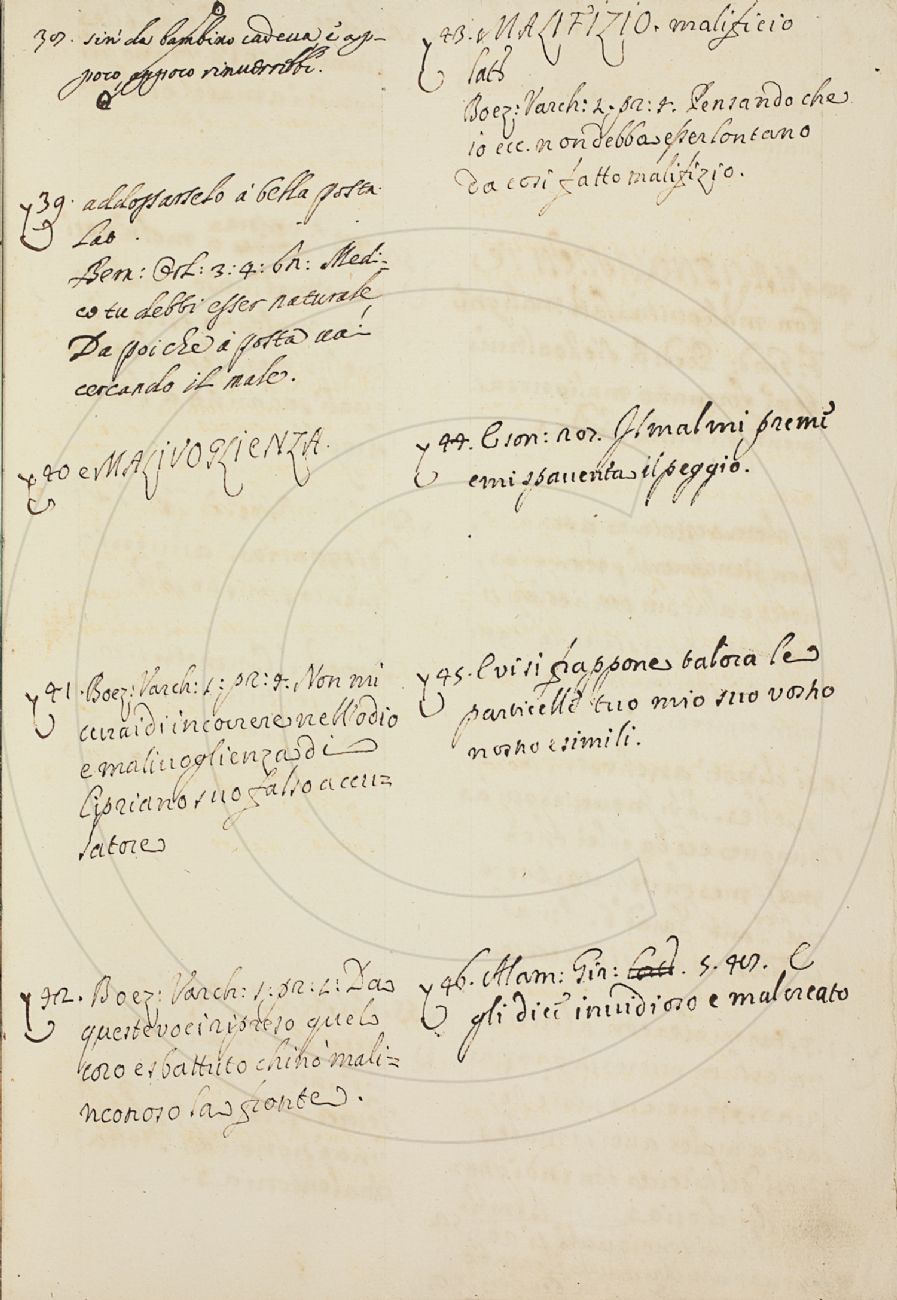 sin' da bambino cadeva, e ap-
poco appoco rinverrebbe.
39. addossarselo a bella posta
Lat.
Bern: Orl: 3: 4: 62: Medi=
co tu debbi esser naturale
Da poi che a posta vai
cercando il male.
40 e MALIVOGLIENZA.
41. Boez: Varch: 1: pr: 4. Non mi
curai di incorrere nell'odio
e malivoglienza di
Cipriano suo falso accu=
satore
42. Boez: Varch: 1: pr: 1: Da
queste voci ripreso quel
coro e sbattuto chinò mali=
nconoso la fronte.
43. e MALIFIZIO. malificio
Lat.
Boez: Varch: 1. pr: 4. Pensando che
io ecc. non debba esser lontano
da così fatto malifizio.
44. Il mal mi preme
e mi spaventa il peggio.
45. E vi si frappone talora le
particelle tuo mio suo vostro
nostro e simili.
46. Alam: Gir: 5. E
gli dice invidioso e malcreato